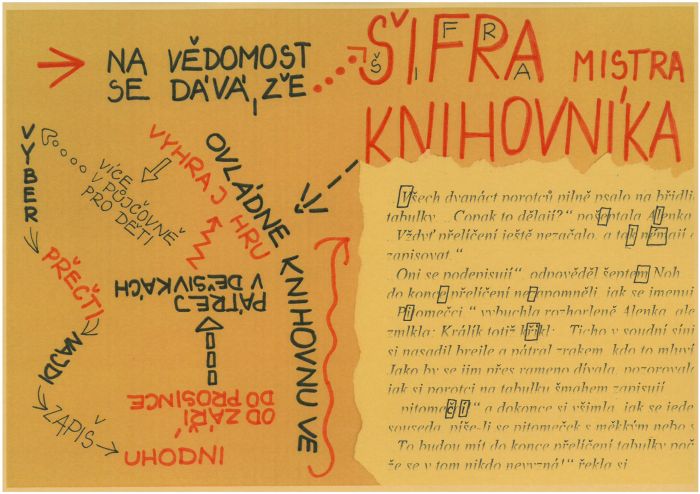 NA VĚDOMOST
SE DÁVÁ, ŽE
ŠIFRA MISTRA
ŠIFRA
KNIHOVNÍKA
OVLÁDNE KNIHOVNU VE
VÝHRAJ HRU
VÍCE
V PŮJČOVNĚ
PRO DĚTI
VYBER
PŘEČTI
NAJDI
ZAPIŠ
UHODNI
OD ZÁŘÍ
DO PROSINCE
PÁTREJ
V DĚSIVKÁCH
Všech dvanáct porotců pilně psalo na břidli
tabulky. „Copak to dělají?“ pošeptala Alenka
Vždyť přelíčení ještě nezačalo, a tak nemají c
zapisovat.“
„Oni se podepisují“, odpověděl šeptem Noh
do konce přelíčení nezapomněli, jak se jmenují
„Pitomečci“ vybuchla rozhořleně Alenka, ale
zmlkla: Králík totiž křikl: „Ticho v soudní síni
si nasadil brejle a pátral zrakem, kdo to mluví
Jako by se jim přes rameno dívala, pozorovala
jak si porotci na tabulku šmahem zapisují
„pitomečci“ a dokonce si všimla, jak se jede
souseda, píše-li se pitomeček s měkkým nebo s
„To budou mít do konce přelíčení tabulky poč
že se v tom nikdo nevyzná!“ řekla si